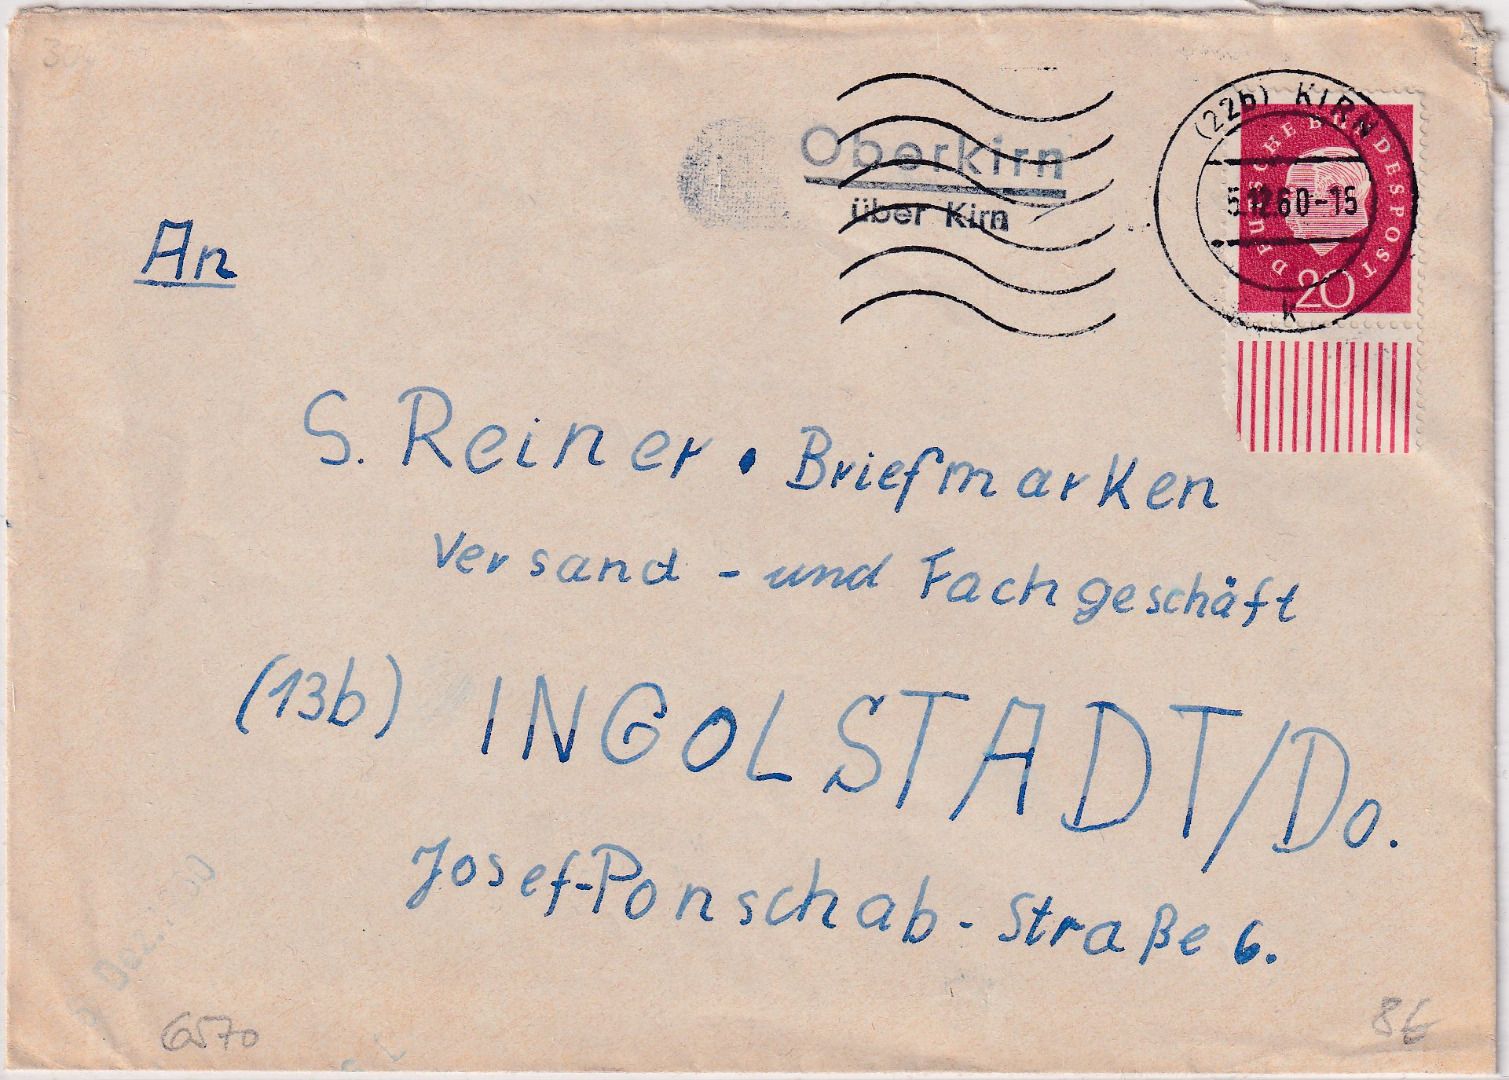 Oberkirn
über Kirn
(22b) KIRN
5.12.60-15
k
DEUTSCHE BUNDESPOST
20
An
S. Reiner • Briefmarken
Versand - und Fachgeschäft
(13b) INGOLSTADT/Do.
Josef-Ponschab-Straße 6.
6570